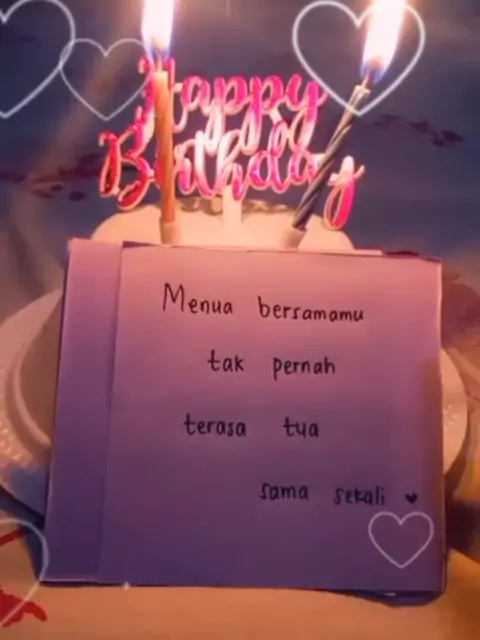 Happy
Birthday
Menua bersamamu
tak pernah
terasa tua
sama sekali ♥